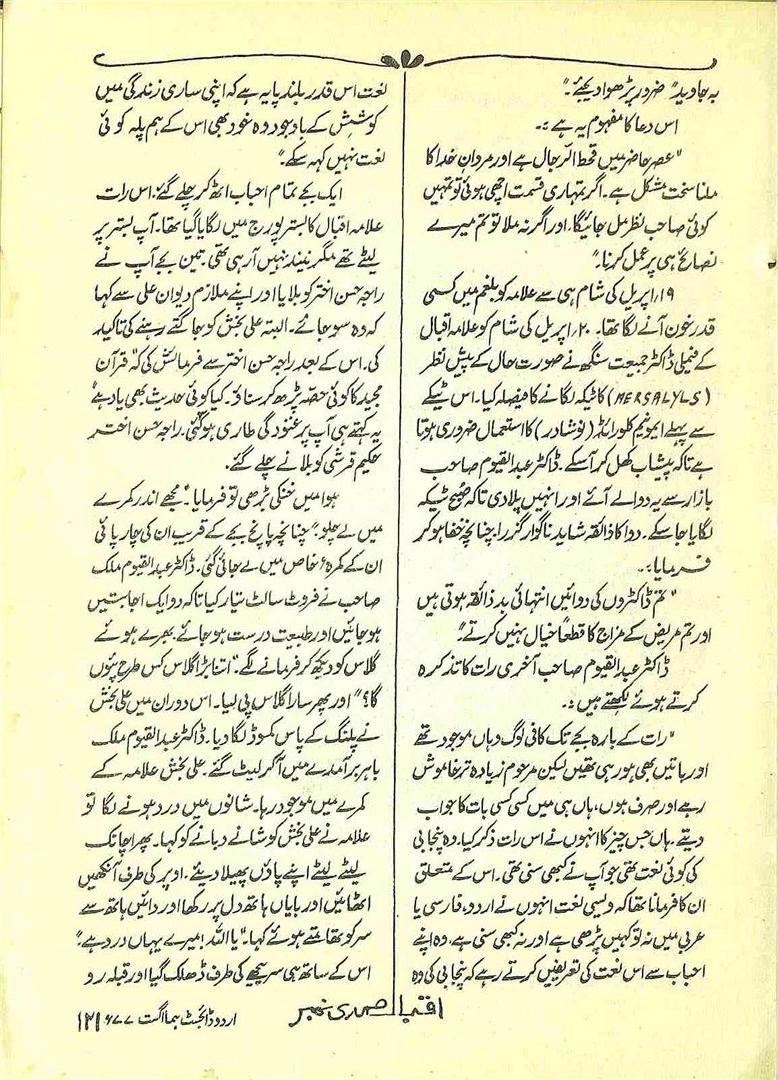 بہ جاوید" ضرور پڑھوا دیجئے۔"
اس دعا کا مفہوم یہ ہے :۔
"عصرِ حاضر میں قحط الرجال ہے اور مردانِ خدا کا
ملنا سخت مشکل ہے۔ اگر تمہاری قسمت اچھی ہوئی تو تمہیں
کوئی صاحبِ نظر مل جائیگا۔ اور اگر نہ ملا تو تم میرے
نصائح ہی پر عمل کرنا۔"
۱۹ اپریل کی شام ہی سے علامہ کو بلغم میں کسی
قدر خون آنے لگا تھا۔ ۲۰ اپریل کی شام کو علامہ اقبال
کے فیملی ڈاکٹر جمیعت سنگھ نے صورت حال کے پیش نظر
(MERSALYLS) کا ٹیکہ لگانے کا فیصلہ کیا۔ اس ٹیکے
سے پہلے ایمونیم کلورائڈ (نوشادر) کا استعمال ضروری ہوتا
ہے تاکہ پیشاب کھل کر آ سکے۔ ڈاکٹر عبدالقیوم صاحب
بازار سے یہ دوا لے آئے اور انہیں پلا دی تاکہ صبح ٹیکہ
لگایا جا سکے۔ دوا کا ذائقہ شاید ناگوار گزرا۔ چنانچہ خفا ہو کر
فرمایا :۔
"تم ڈاکٹروں کی دوائیں انتہائی بد ذائقہ ہوتی ہیں
اور تم مریض کے مزاج کا قطعاً خیال نہیں کرتے۔"
ڈاکٹر عبدالقیوم صاحب آخری رات کا تذکرہ
کرتے ہوئے لکھتے ہیں :۔
"رات کے بارہ بجے تک کافی لوگ وہاں موجود تھے
اور باتیں بھی ہو رہی تھیں لیکن مرحوم زیادہ تر خاموش
رہے اور صرف ہوں، ہاں ہی میں کسی کسی بات کا جواب
دیتے۔ ہاں جس چیز کا انہوں نے اس رات ذکر کیا۔ وہ پنجابی
کی کوئی نعت تھی جو آپ نے کبھی سنی تھی۔ اس کے متعلق
ان کا فرمانا تھا کہ ویسی نعت انہوں نے اردو، فارسی یا
عربی میں نہ تو کہیں پڑھی ہے اور نہ کبھی سنی ہے، وہ اپنے
احباب سے اس نعت کی تعریفیں کرتے رہے کہ پنجابی کی وہ
نعت اس قدر بلند پایہ ہے کہ اپنی ساری زندگی میں
کوشش کے باوجود وہ خود بھی اس کے ہم پلہ کوئی
نعت نہیں کہہ سکے۔"
ایک بجے تمام احباب اٹھ کر چلے گئے۔ اس رات
علامہ اقبال کا بستر پورچ میں لگایا گیا تھا۔ آپ بستر پر
لیٹے تھے مگر نیند نہیں آ رہی تھی۔ تین بجے آپ نے
راجہ حسن اختر کو بلایا اور اپنے ملازم دیوان علی سے کہا
کہ وہ سو جائے۔ البتہ علی بخش کو جاگتے رہنے کی تاکید
کی۔ اس کے بعد راجہ حسن اختر سے فرمائش کی کہ "قرآن
مجید کا کوئی حصہ پڑھ کر سناؤ۔ کیا کوئی حدیث بھی یاد ہے؟"
یہ کہتے ہی آپ پر غنودگی طاری ہو گئی۔ راجہ حسن اختر
حکیم قرشی کو بلانے چلے گئے۔
ہوا میں خنکی بڑھی تو فرمایا۔ "مجھے اندر کمرے
میں لے چلو۔" چنانچہ پانچ بجے کے قریب ان کی چارپائی
ان کے کمرہ خاص میں لے جائی گئی۔ ڈاکٹر عبدالقیوم ملک
صاحب نے فروٹ سالٹ تیار کیا تاکہ دو ایک اجابتیں
ہو جائیں اور طبیعت درست ہو جائے۔ بھرے ہوئے
گلاس کو دیکھ کر فرمانے لگے۔ "اتنا بڑا گلاس کس طرح پیئوں
گا؟" اور پھر سارا گلاس پی لیا۔ اس دوران میں علی بخش
نے پلنگ کے پاس کموڈ لگا دیا۔ ڈاکٹر عبدالقیوم ملک
باہر برآمدے میں آ کر لیٹ گئے۔ علی بخش علامہ کے
کمرے میں موجود رہا۔ شانوں میں درد ہونے لگا تو
علامہ نے علی بخش کو شانے دبانے کو کہا۔ پھر اچانک
لیٹے لیٹے اپنے پاؤں پھیلا دیئے۔ اوپر کی طرف آنکھیں
اٹھائیں اور بایاں ہاتھ دل پر رکھا اور دائیں ہاتھ سے
سر کو تھامتے ہوئے کہا۔ "یا اللہ! میرے یہاں درد ہے۔"
اس کے ساتھ ہی سر پیچھے کی طرف ڈھلک گیا اور قبلہ رو
اقبال صدی نمبر
اردو ڈائجسٹ ہما اگست ۷۷ء ۱۲۱